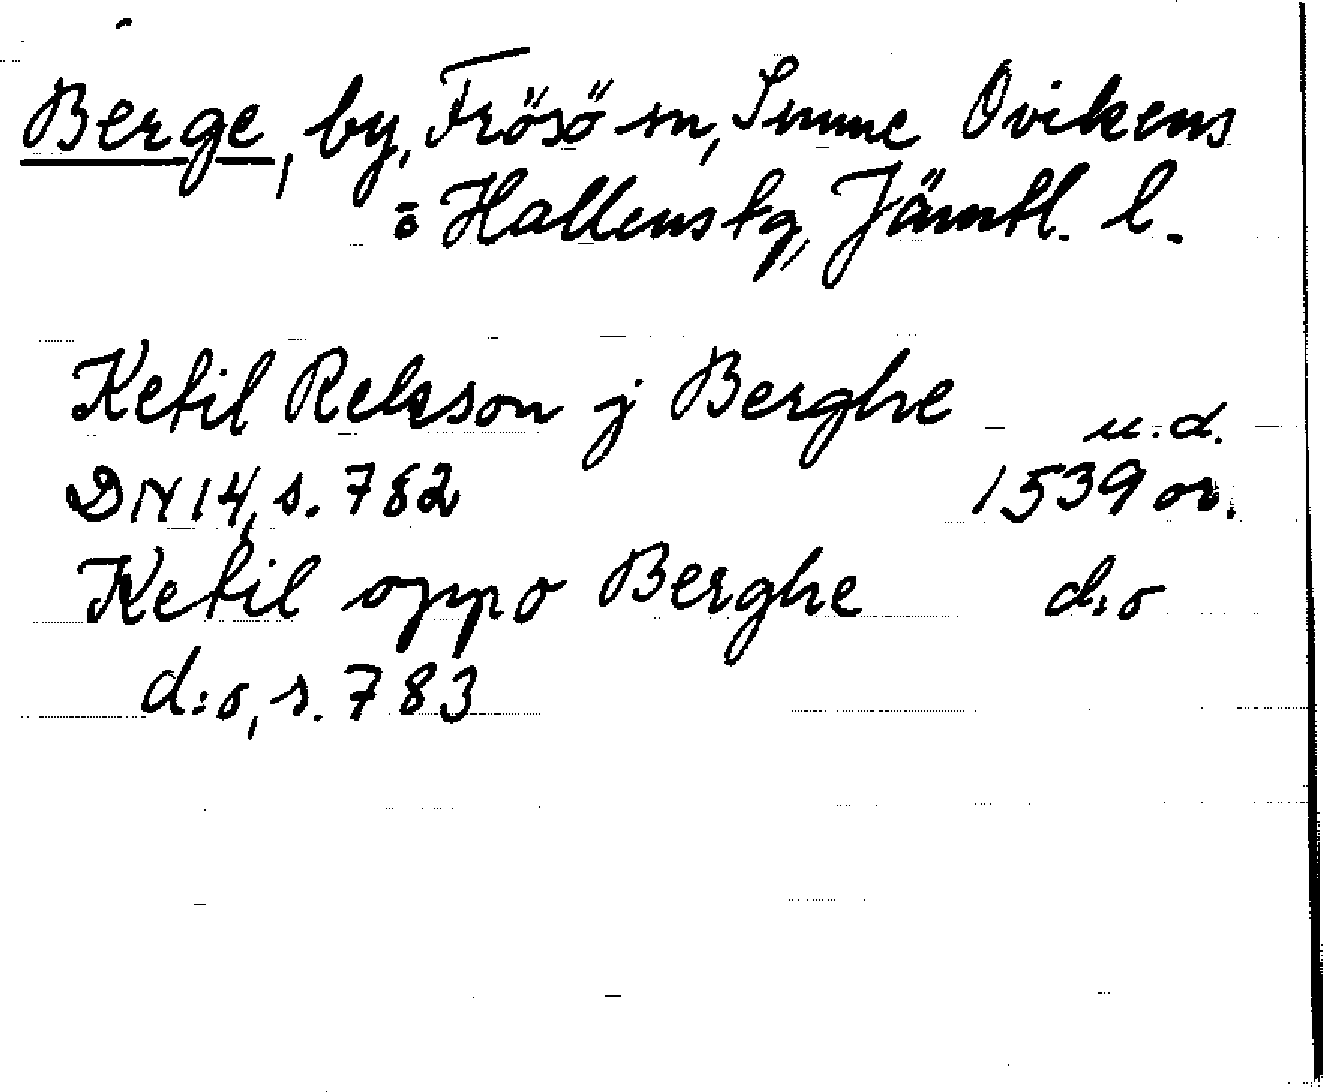 Berge, by, Frösö sn, Sunne Ovikens
o Hallens tg, Jämtl. l.
Ketil Rekson j Berghe u.d.
DN 14, s. 782 1539 or.
Ketil oppo Berghe d:o
d:o, s. 783